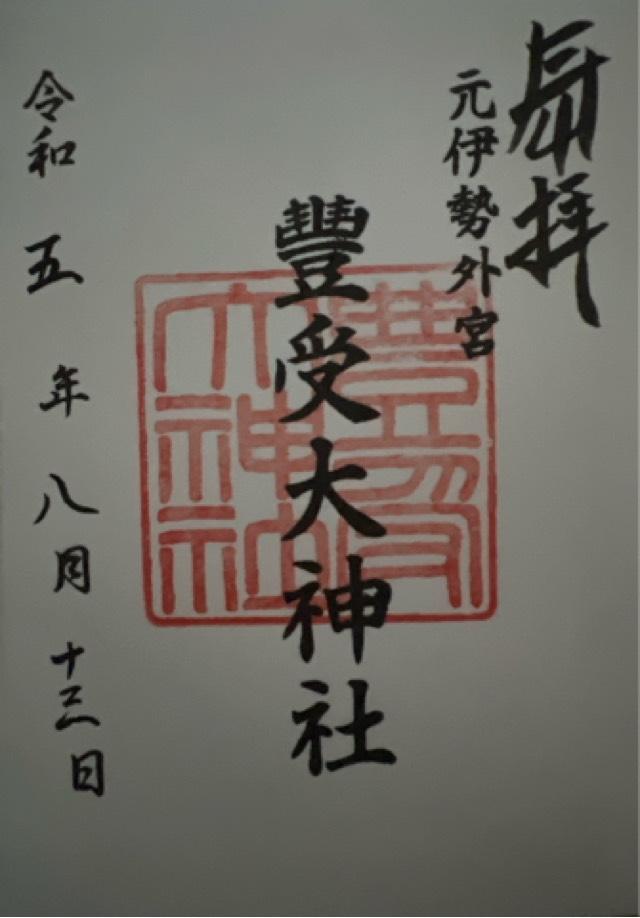 奉拝
元伊勢外宮
豐受大神社
令和五年八月十三日
豊受
大神社